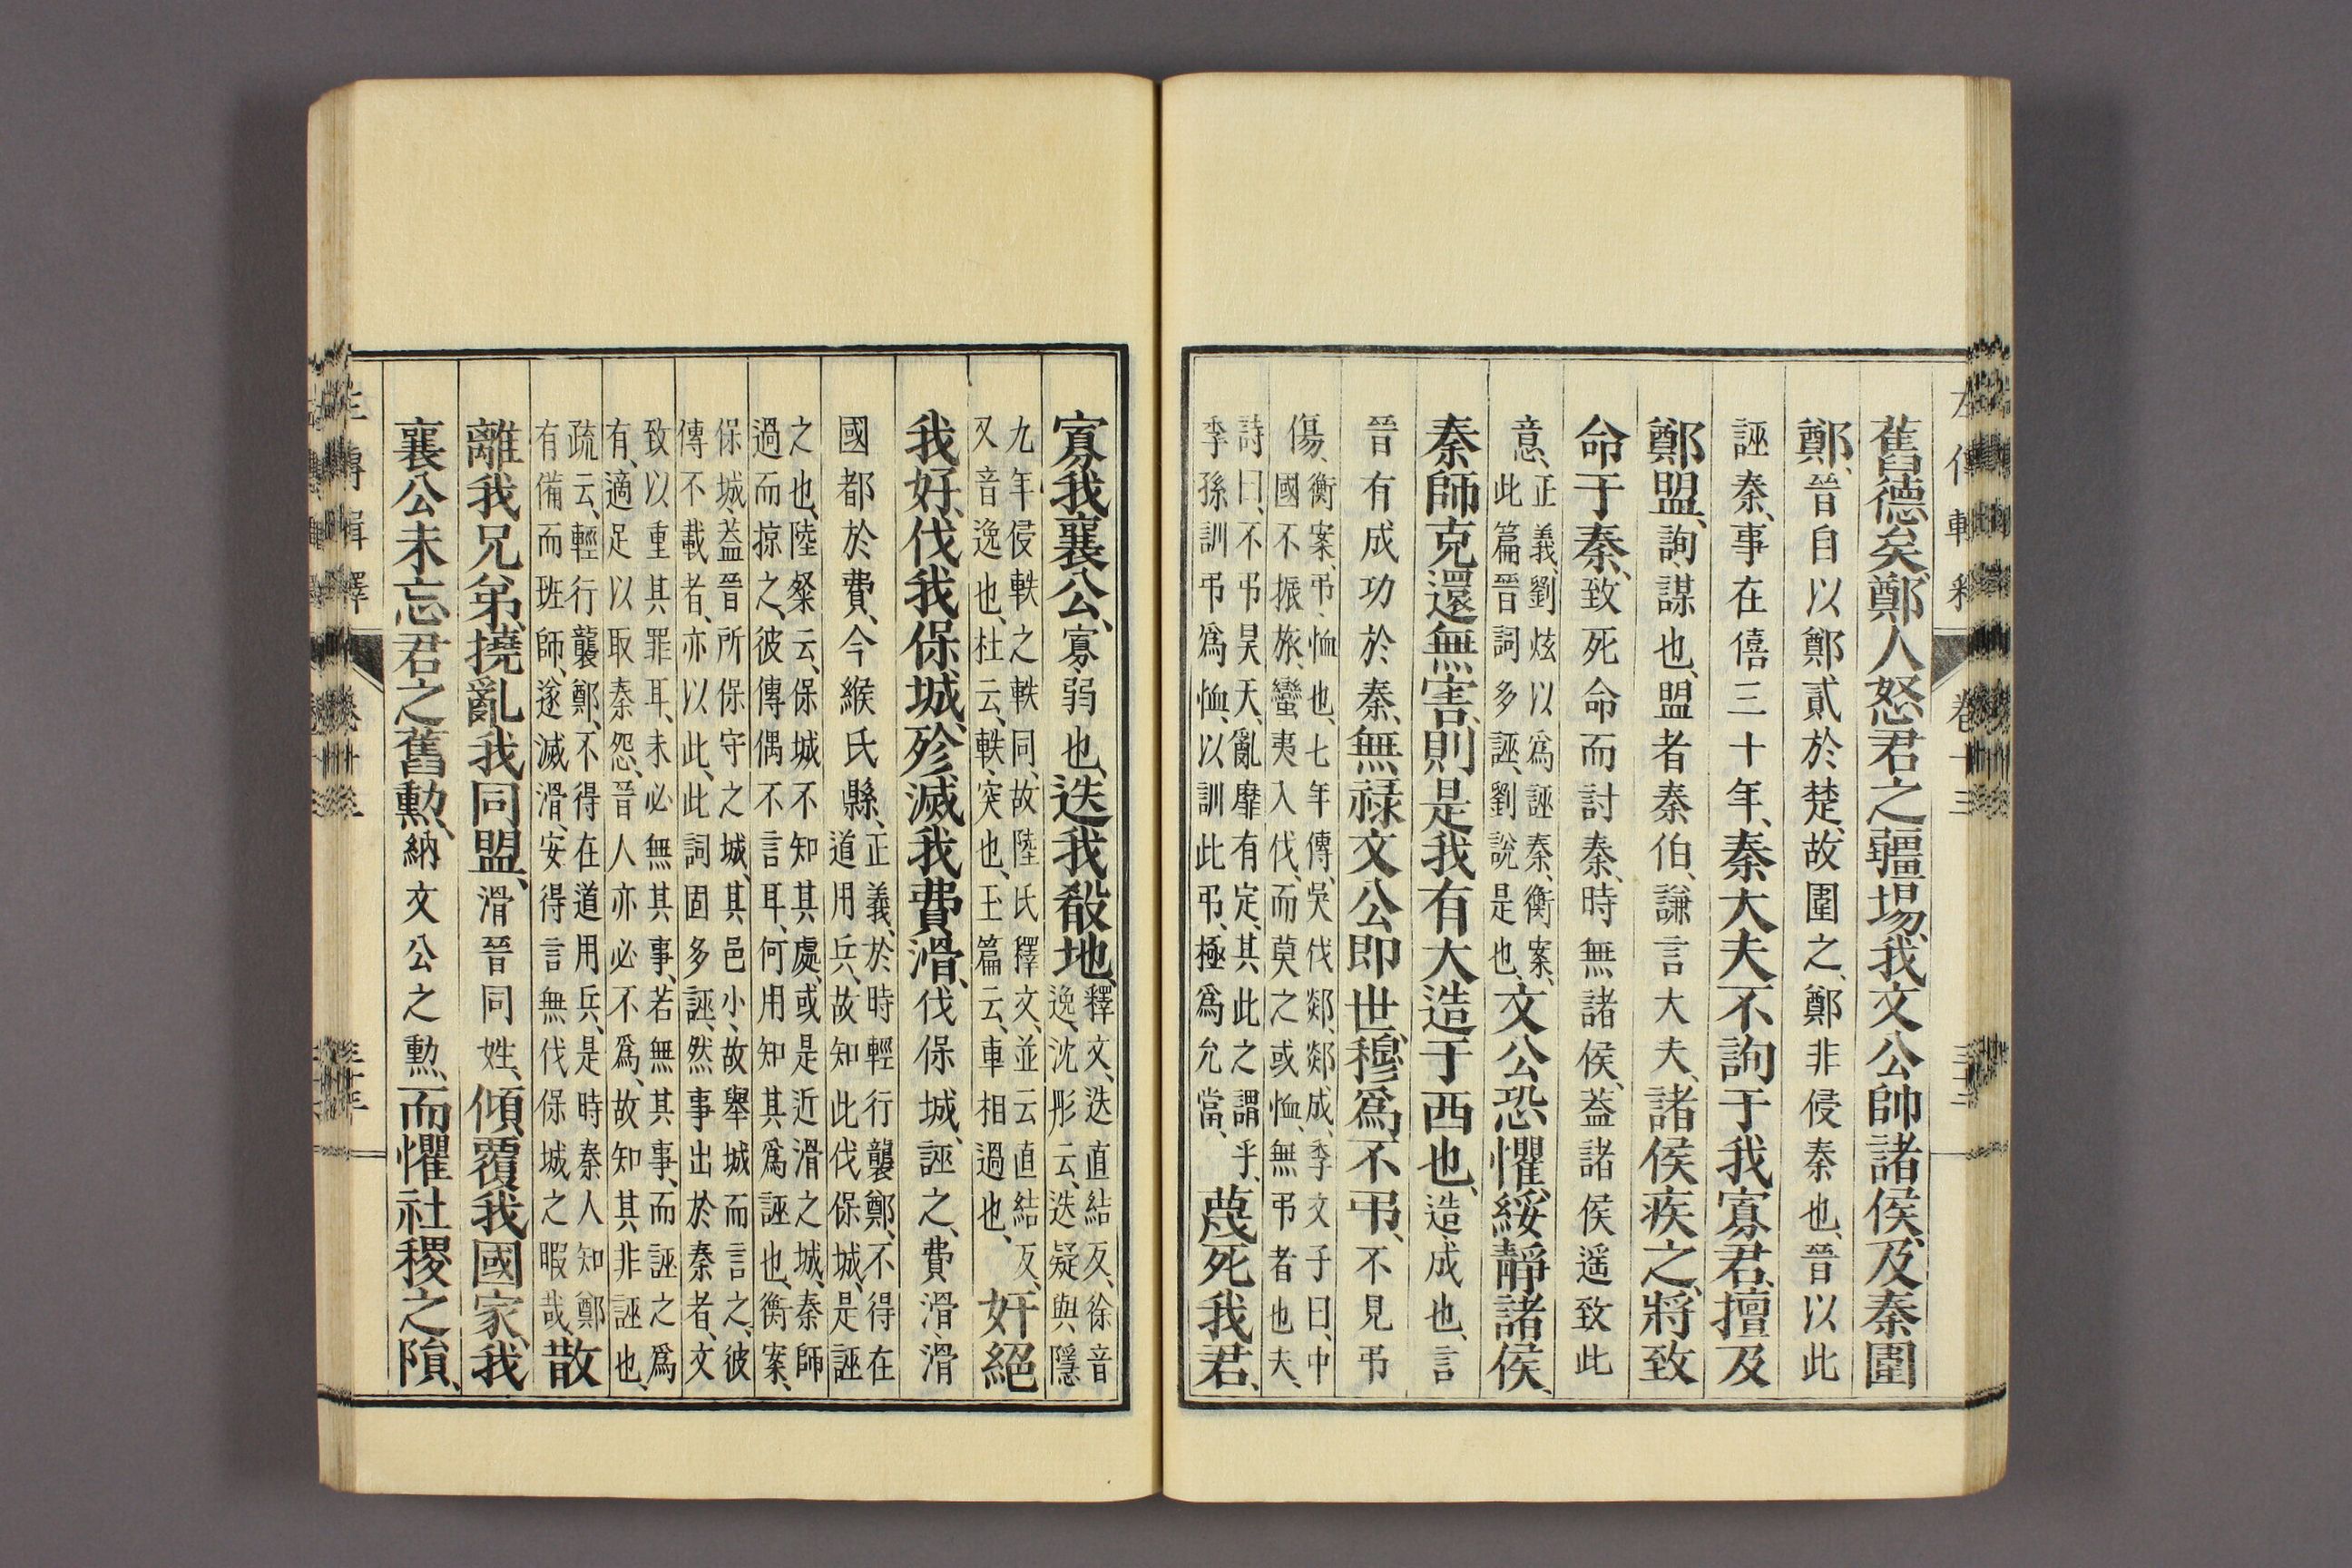 舊德矣鄭人怒君之疆埸、我文公帥諸侯、及秦圍
鄭、晉自以鄭貳於楚、故圍之、鄭非侵秦也、晉以此
誣秦、事在僖三十年、秦大夫不詢于我寡君、擅及
鄭盟、詢、謀也、盟者秦伯、謙言大夫、諸侯疾之、將致
命于秦、致死命而討秦、時無諸侯、蓋諸侯遙致此
意、正義、劉炫以爲誣秦、衡案、
此篇晉詞多誣、劉說是也、文公恐懼、綏靜諸侯、
秦師克還無害、則是我有大造于西也、造、成也、言
晉有成功於秦、無祿文公即世、穆爲不弔、不見弔
傷、衡案、弔、恤也、七年傳、吳伐郯、郯成、季文子曰、中
國不振旅、蠻夷入伐、而莫之或恤、無弔者也夫、
詩曰、不弔昊天、亂靡有定、其此之謂乎、
季孫訓弔爲恤、以訓此弔、極爲允當、蔑死我君、
寡我襄公、寡、弱也、迭我殽地、釋文、迭直結反、徐音
逸、沈彤云、迭疑與隱
九年侵軼之軼同、故陸氏釋文、並云直結反、
又音逸也、杜云、軼、突也、王篇云、車相過也、奸絕
我好、伐我保城、殄滅我費滑、伐保城、誣之、費滑、滑
國都於費、今緱氏縣、正義、於時輕行襲鄭、不得在
道用兵、故知此伐保城、是誣
之也、陸粲云、保城不知其處、或是近滑之城、秦師
過而掠之、彼傳偶不言耳、何用知其爲誣也、衡案、
保城、蓋晉所保守之城、其邑小、故舉城而言之、彼
傳不載者、亦以此、此詞固多誣、然事出於秦者、文
致以重其罪耳、未必無其事、若無其事、而誣之爲
有、適足以取秦怨、晉人亦必不爲、故知其非誣也、
疏云、輕行襲鄭、不得在道用兵、是時秦人知鄭
有備而班師、遂滅滑、安得言無伐保城之暇哉、散
離我兄弟、撓亂我同盟、滑晉同姓、傾覆我國家、我
襄公未忘君之舊勳、納文公之勳、而懼社稷之隕、